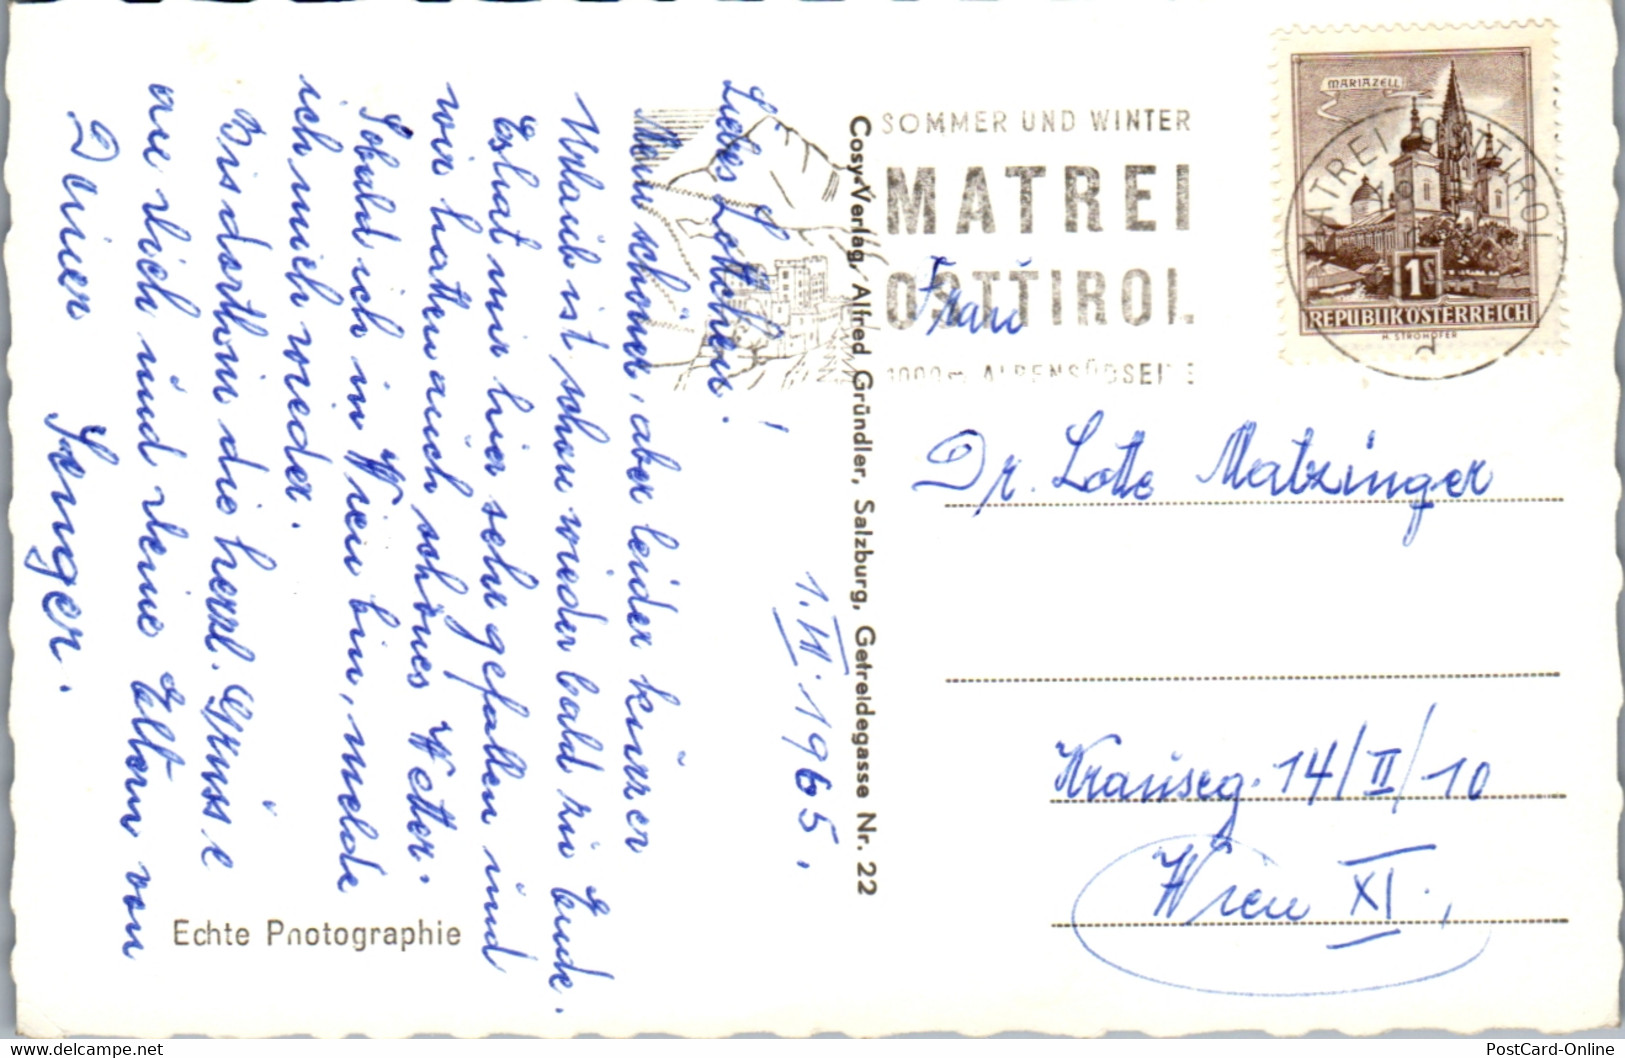 Liebes Lottchen!
Mein schöner, aber leider kurzer
Urlaub ist schon wieder bald zu Ende.
Es hat mir hier sehr gefallen und
wir hatten auch schönes Wetter.
Sobald ich in Wien bin, melde
ich mich wieder.
Bis dorthin die herzl. Grüsse
an dich und deine Eltern von
Deiner
1.VII.1965.
Echte Photographie
Cosy-Verlag, Alfred Gründler, Salzburg, Getreidegasse Nr. 22
SOMMER UND WINTER
MATREI
OSTTIROL
1000m ALPENSÜDSEITE
MARIAZELL
1S
REPUBLIK ÖSTERREICH
H. STROHOFER
MATREI OSTTIROL
a
Frau
Dr. Lotte Matzinger
Krauseg. 14/II/10
Wien XI.,
PostCard-Online.com
PostCard-Online